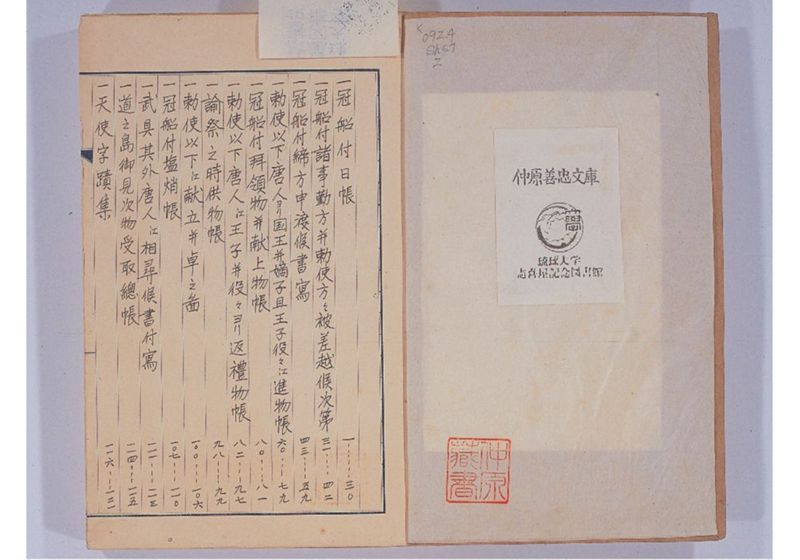 K092.4
Sh57
Z
仲原善忠文庫
學
琉球大学
志喜屋記念図書館
仲原
蔵書
一冠船付日帳 一…三〇
一冠船付諸事勤方并勅使方々被差越候次第 三一…四二
一冠船付締方申渡候書寫 四三…五九
一勅使以下唐人ヨリ国王并嫡子且王子役々江進物帳 六〇…七九
一冠船付拜領物并献上物帳 八〇…八一
一勅使以下唐人江王子并役々ヨリ返禮物帳 八二…九七
一諭祭之時供物帳 九八…九九
一勅使以下江献立并卓之啚 一〇〇…一〇六
一冠船付塩焇帳 一〇七…一一〇
一武具其外唐人江相尋候書付寫 一一一…一一三
一道之島御見次物受取總帳 一一四…一一五
一天使字蹟集 一一六…一三一